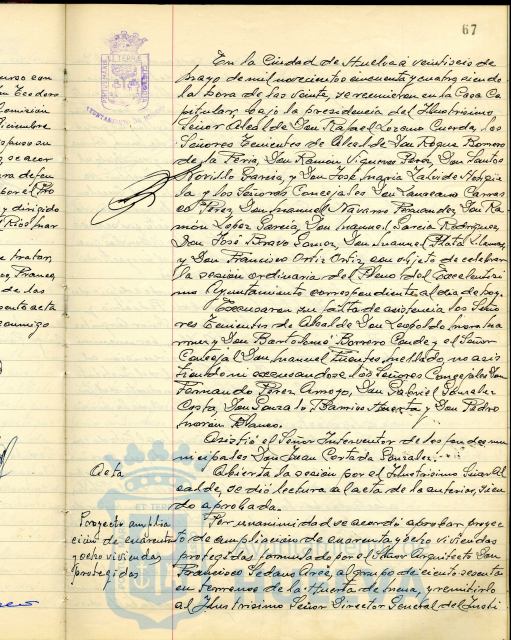 67
En la Ciudad de Huelva a veintiseis de
mayo de mil novecientos cincuenta y cuatro, siendo
la hora de las veinte, se reunieron en la Casa Ca
pitular, bajo la presidencia del Ilustrísimo
Señor Alcalde Don Rafael Lozano Cuerda, los
Señores Tenientes de Alcalde Don Roque Borrero
de la Feria, Don Ramón Vigueras Pérez, Don Santos
García, y Don José María
la y los Señores Concejales Don Laureano Carras
co Pérez, Don Manuel Navarro Fernandez, Don Ra
món López García, Don Manuel García Rodríguez,
Don José Bravo Gomez, Don Juan
y Don Francisco Ortiz Ortiz, con objeto de celebrar
la sesión ordinaria del Pleno del Excelentisi
mo Ayuntamiento correspondiente al dia de hoy.
Excusaron su falta de asistencia los Seño
res Tenientes de Alcalde Don Leopoldo
y Don Bartolomé Borrero Conde y el Señor
Concejal Don Manuel Fuentes no asis
tiendo ni excusandose los Señores Concejales Don
Fernando Pérez Arroyo, Don Gabriel Gonzalez
Costa, Don Gonzalo Barrios Huerta y Don Pedro
Morón Blanco.
Asistió el Señor Interventor de los fondos mu
nicipales Don Juan Cortada Gonzalez.
Acta
Abierta la sesión por el Ilustrisimo Señor Al
calde, se dió lectura al acta de la anterior, sien
do aprobada.
Proyecto amplia
ción de cuarenta
y ocho viviendas
protegidas
Por unanimidad se acordó aprobar proyec
to de ampliación de cuarenta y ocho viviendas
protegidas formulado por el Señor Arquitecto Don
Francisco Sedano Arce, al grupo de ciento sesenta
en terrenos de la Huerta de Mena, y remitirlo
al Ilustrisimo Señor Director General del Insti